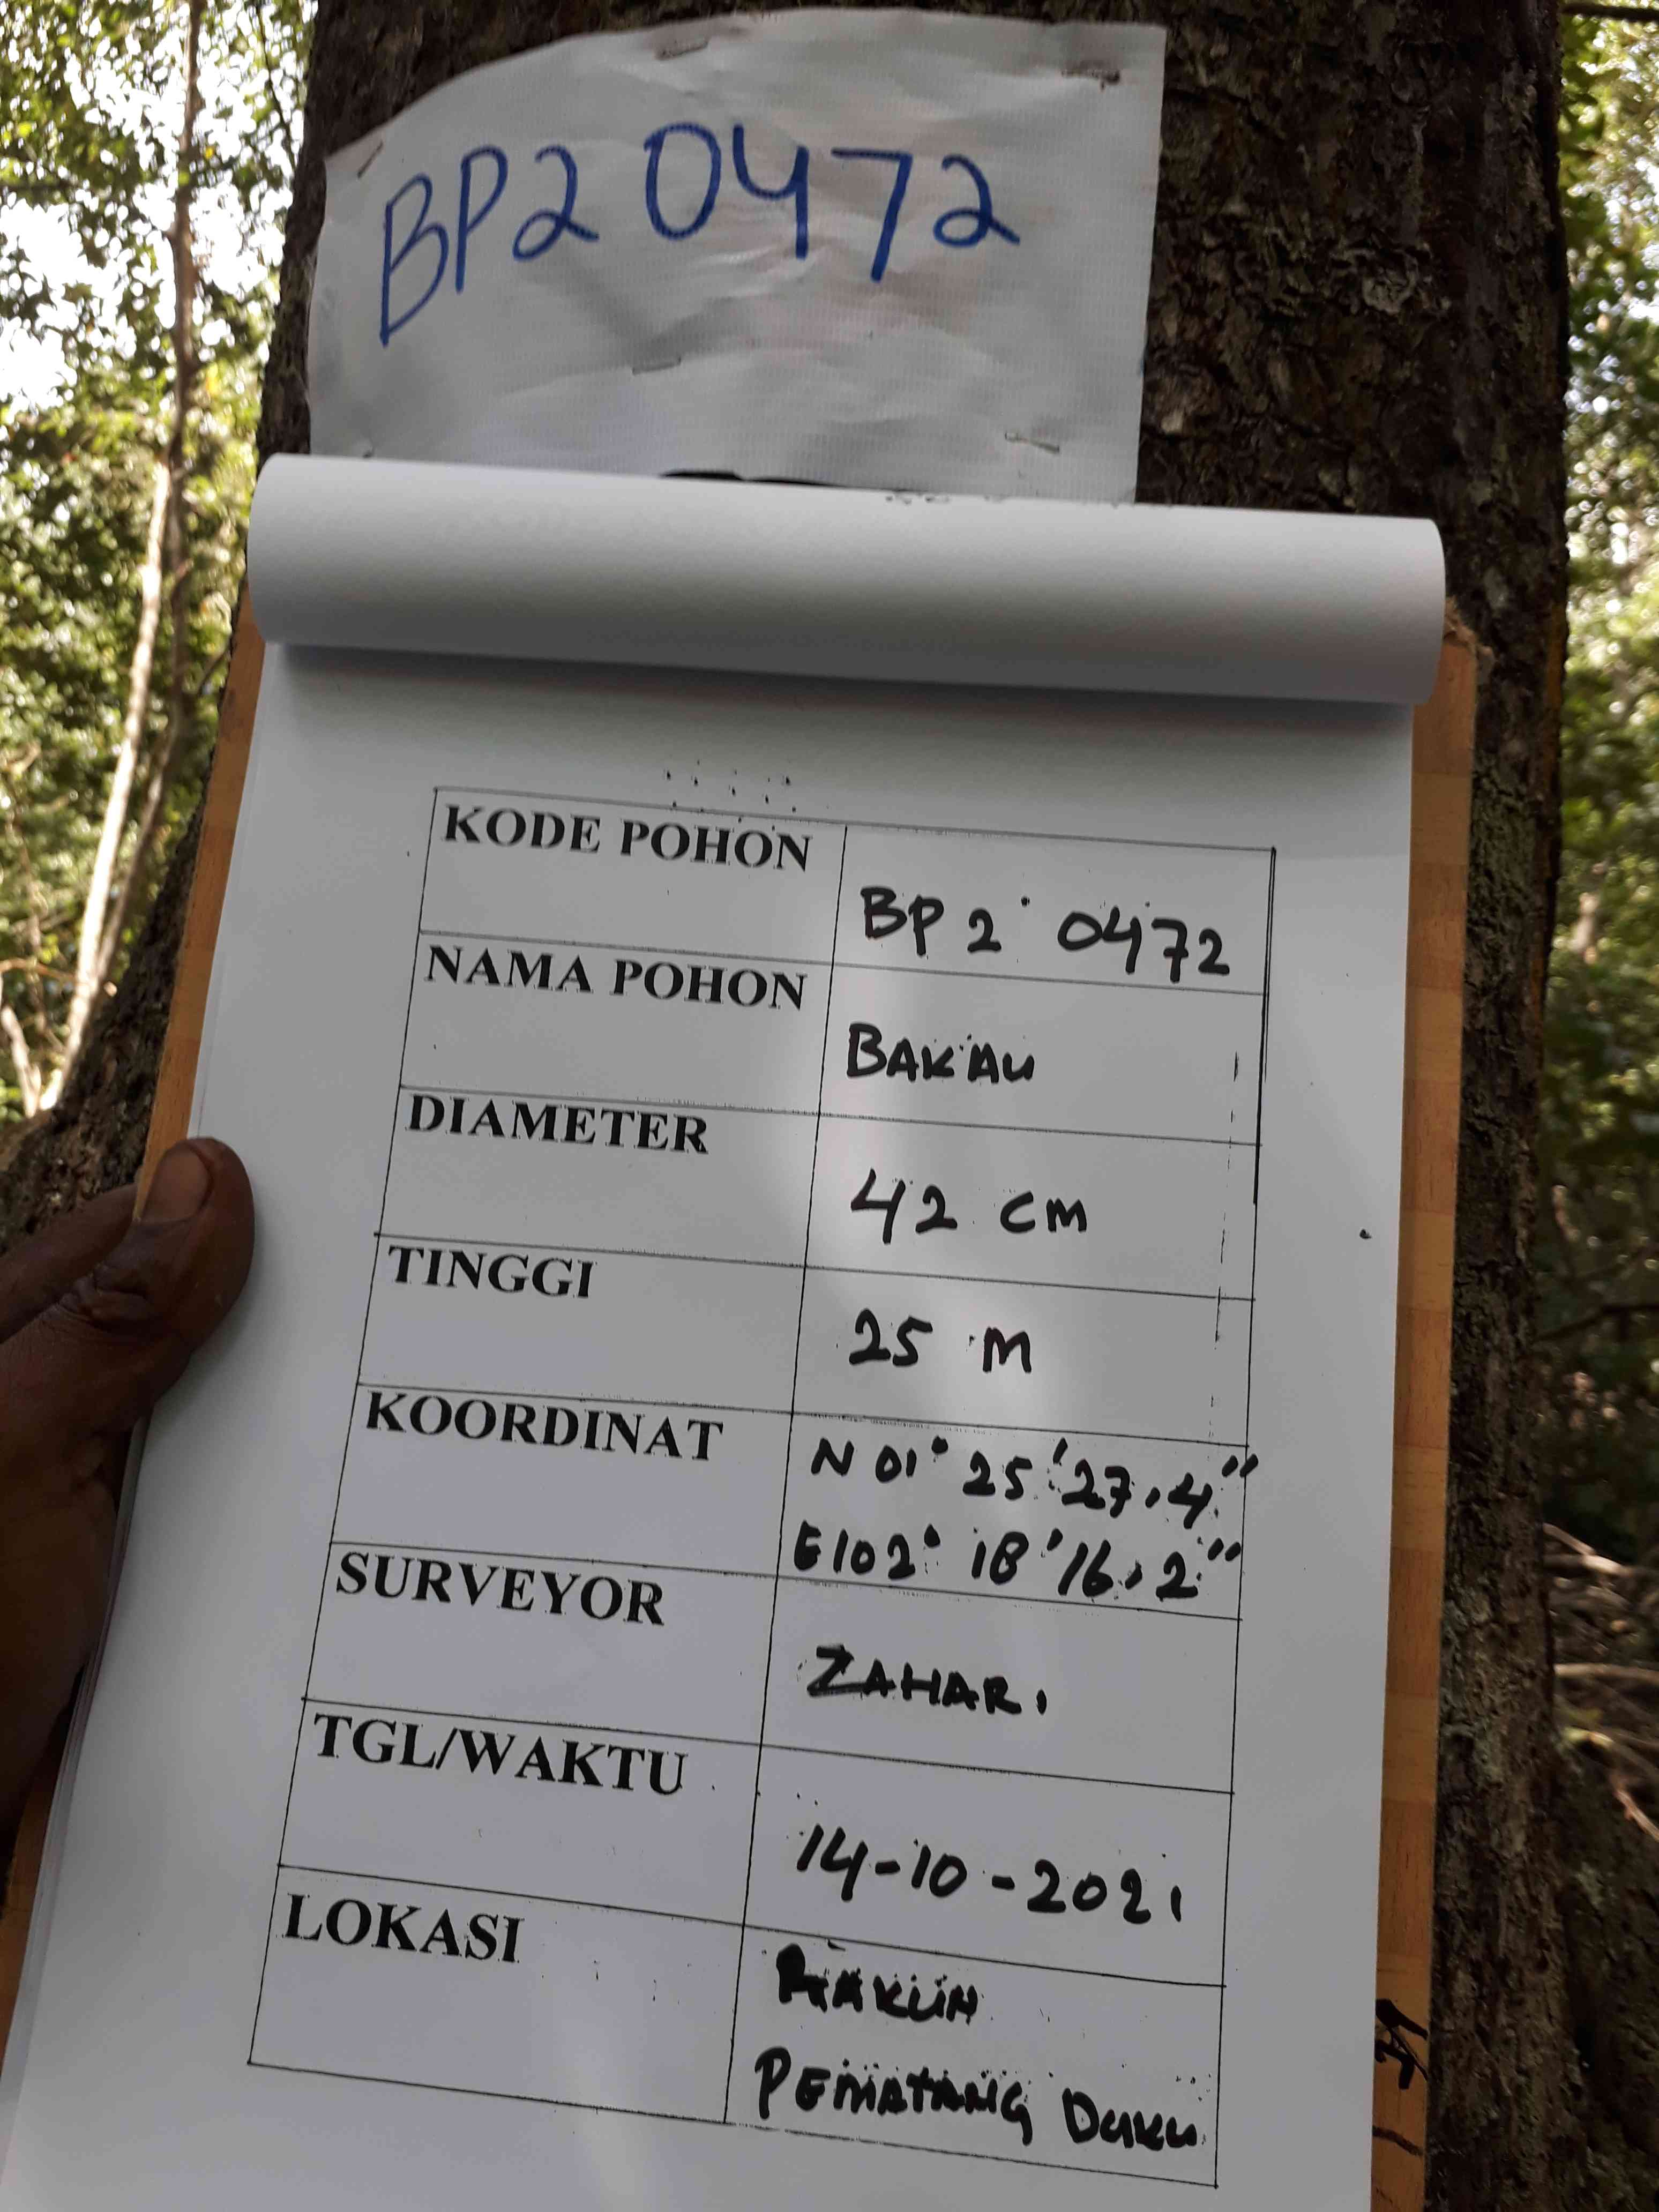 BP2 0472
KODE POHON
BP 2 0472
NAMA POHON
BAKAU
DIAMETER
42 cm
TINGGI
25 M
KOORDINAT
N 01° 25' 27,4"
E102° 18' 16,2"
SURVEYOR
ZAHARI
TGL/WAKTU
14-10-2021
LOKASI
PEMATANG DUKU